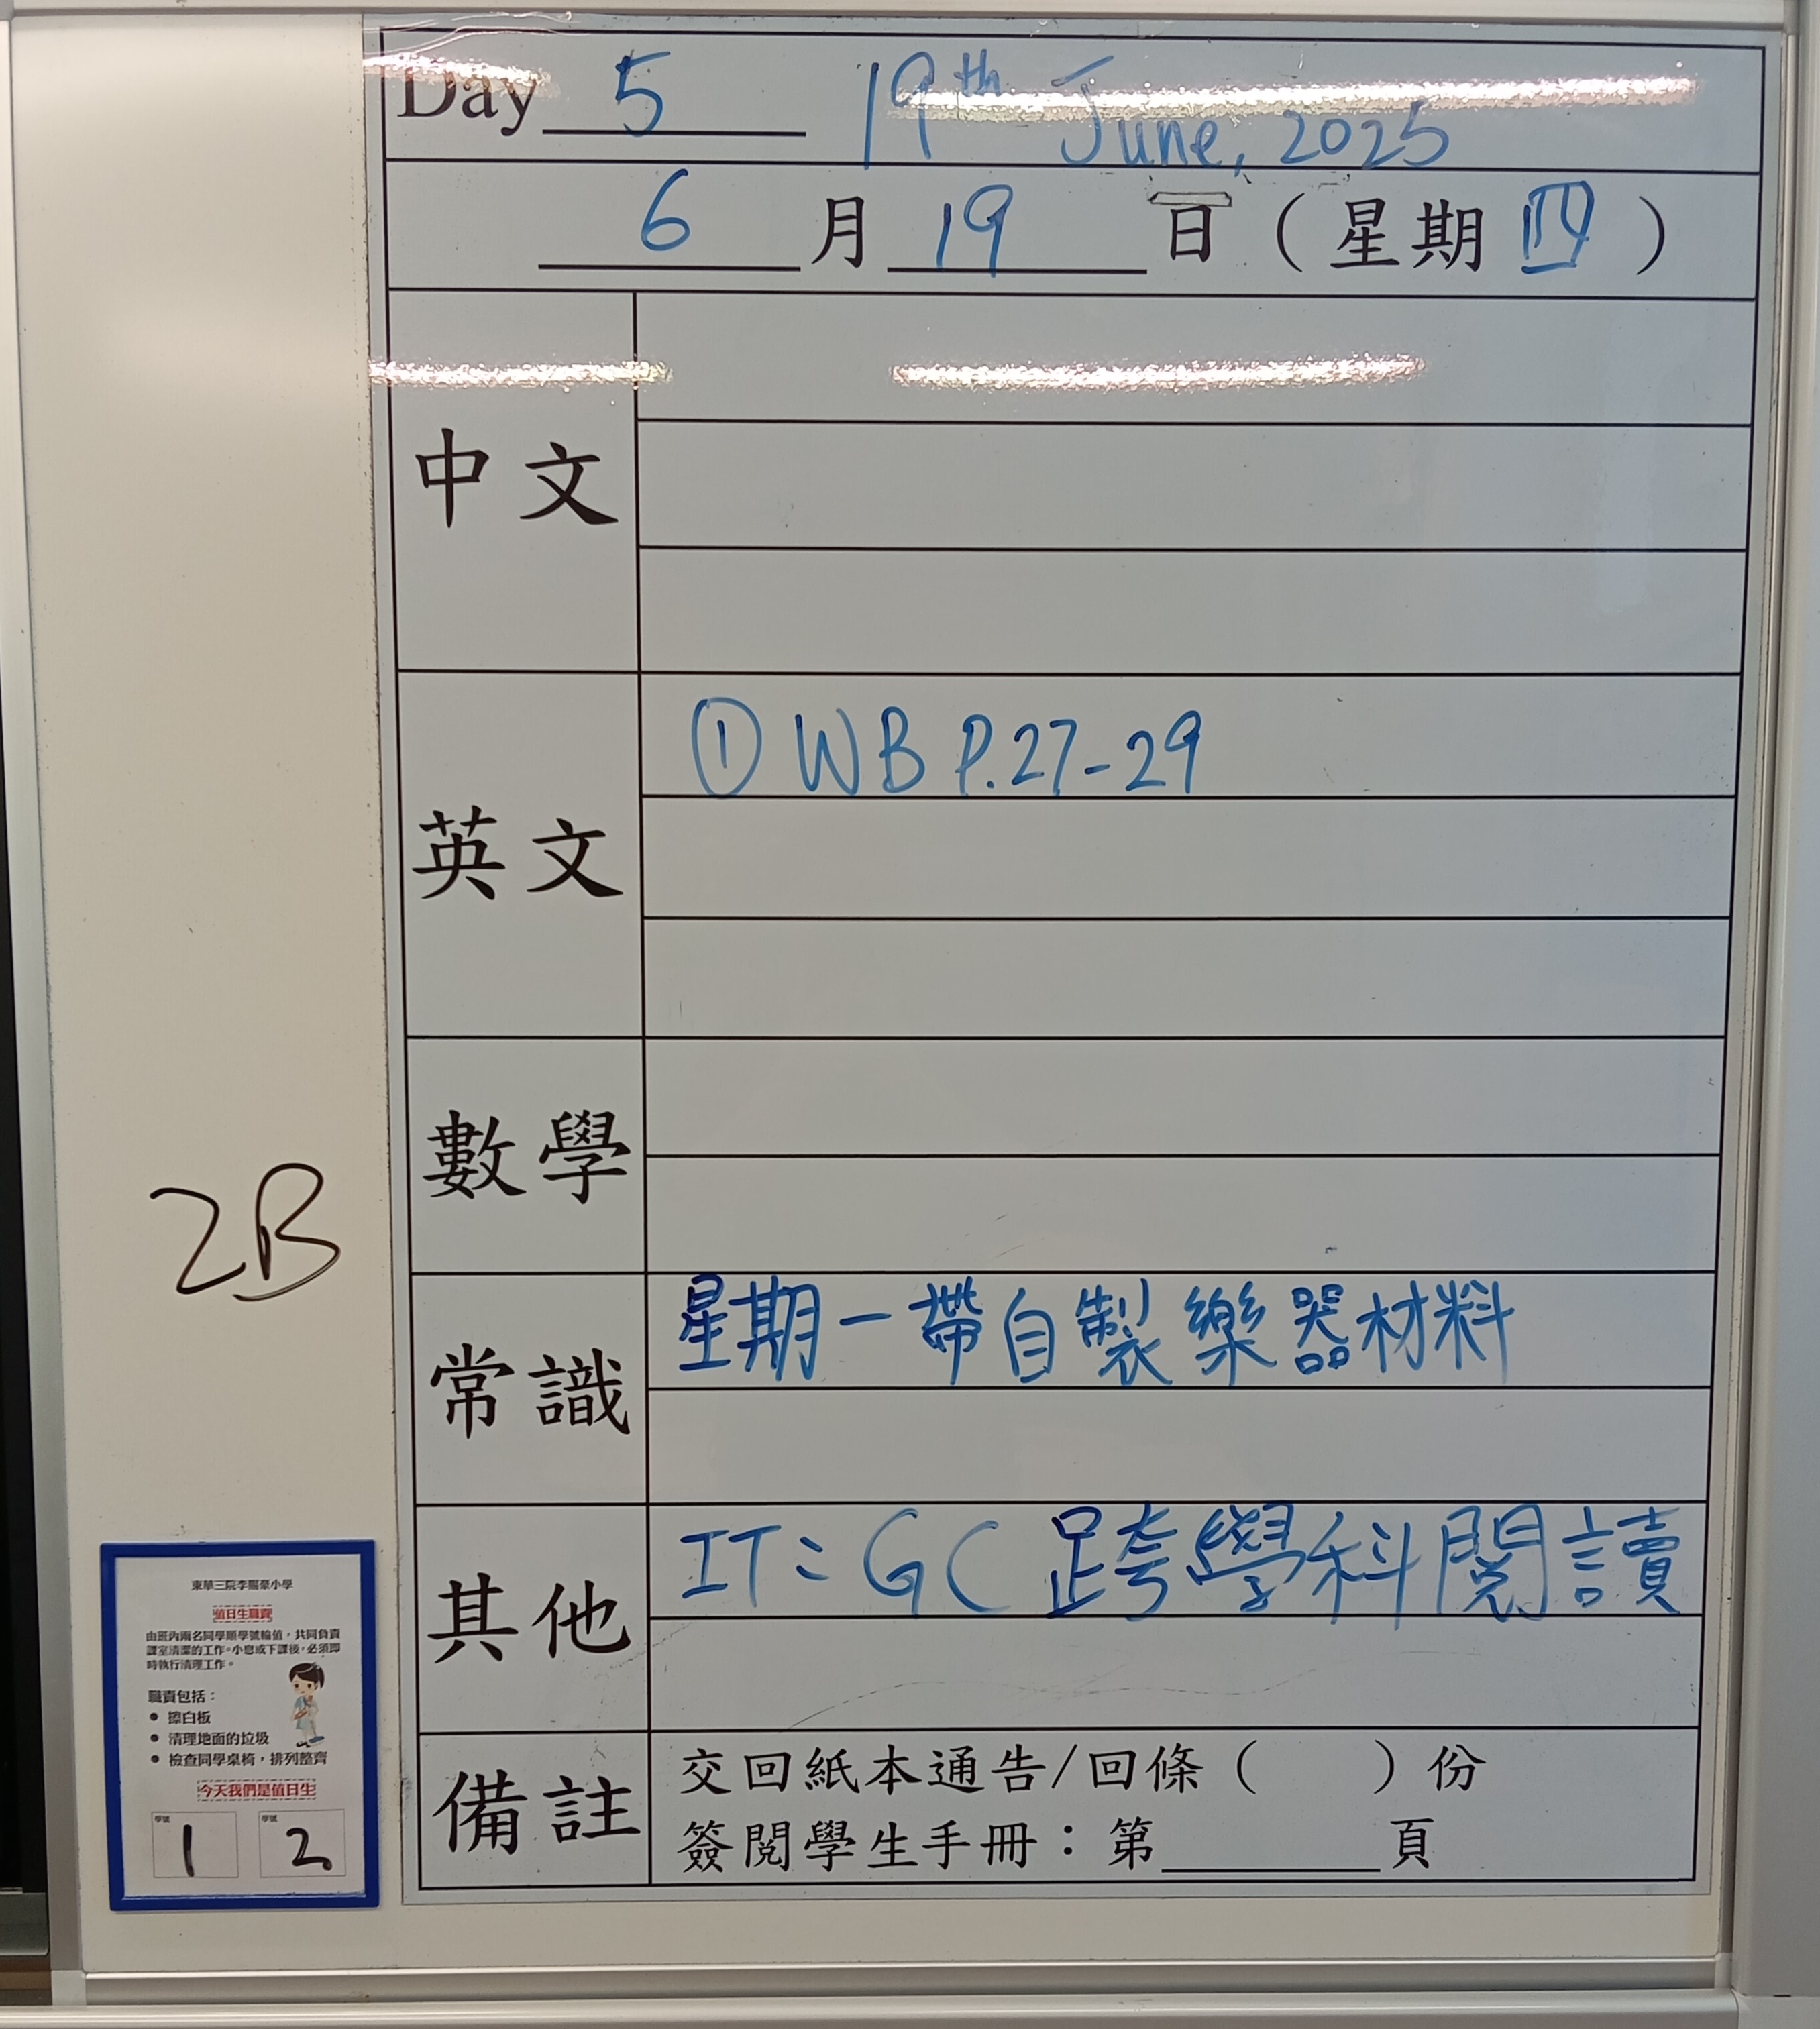 Day 5 19th June, 2025
6 月 19 日 ( 星期 四 )
中文
英文
① WB P.27-29
數學
常識
星期一帶自製樂器材料
其他
IT: GC 跨學科閱讀
備註
交回紙本通告/回條 ( ) 份
簽閱學生手冊：第______頁
2B
東華三院李賜豪小學
值日生職責
由班內兩名同學順學號輪值，共同負責
課室清潔的工作。小息或下課後，必須即
時執行清理工作。
職責包括：
• 擦白板
• 清理地面的垃圾
• 檢查同學桌椅，排列整齊
今天我們是值日生
學號 學號
1 2